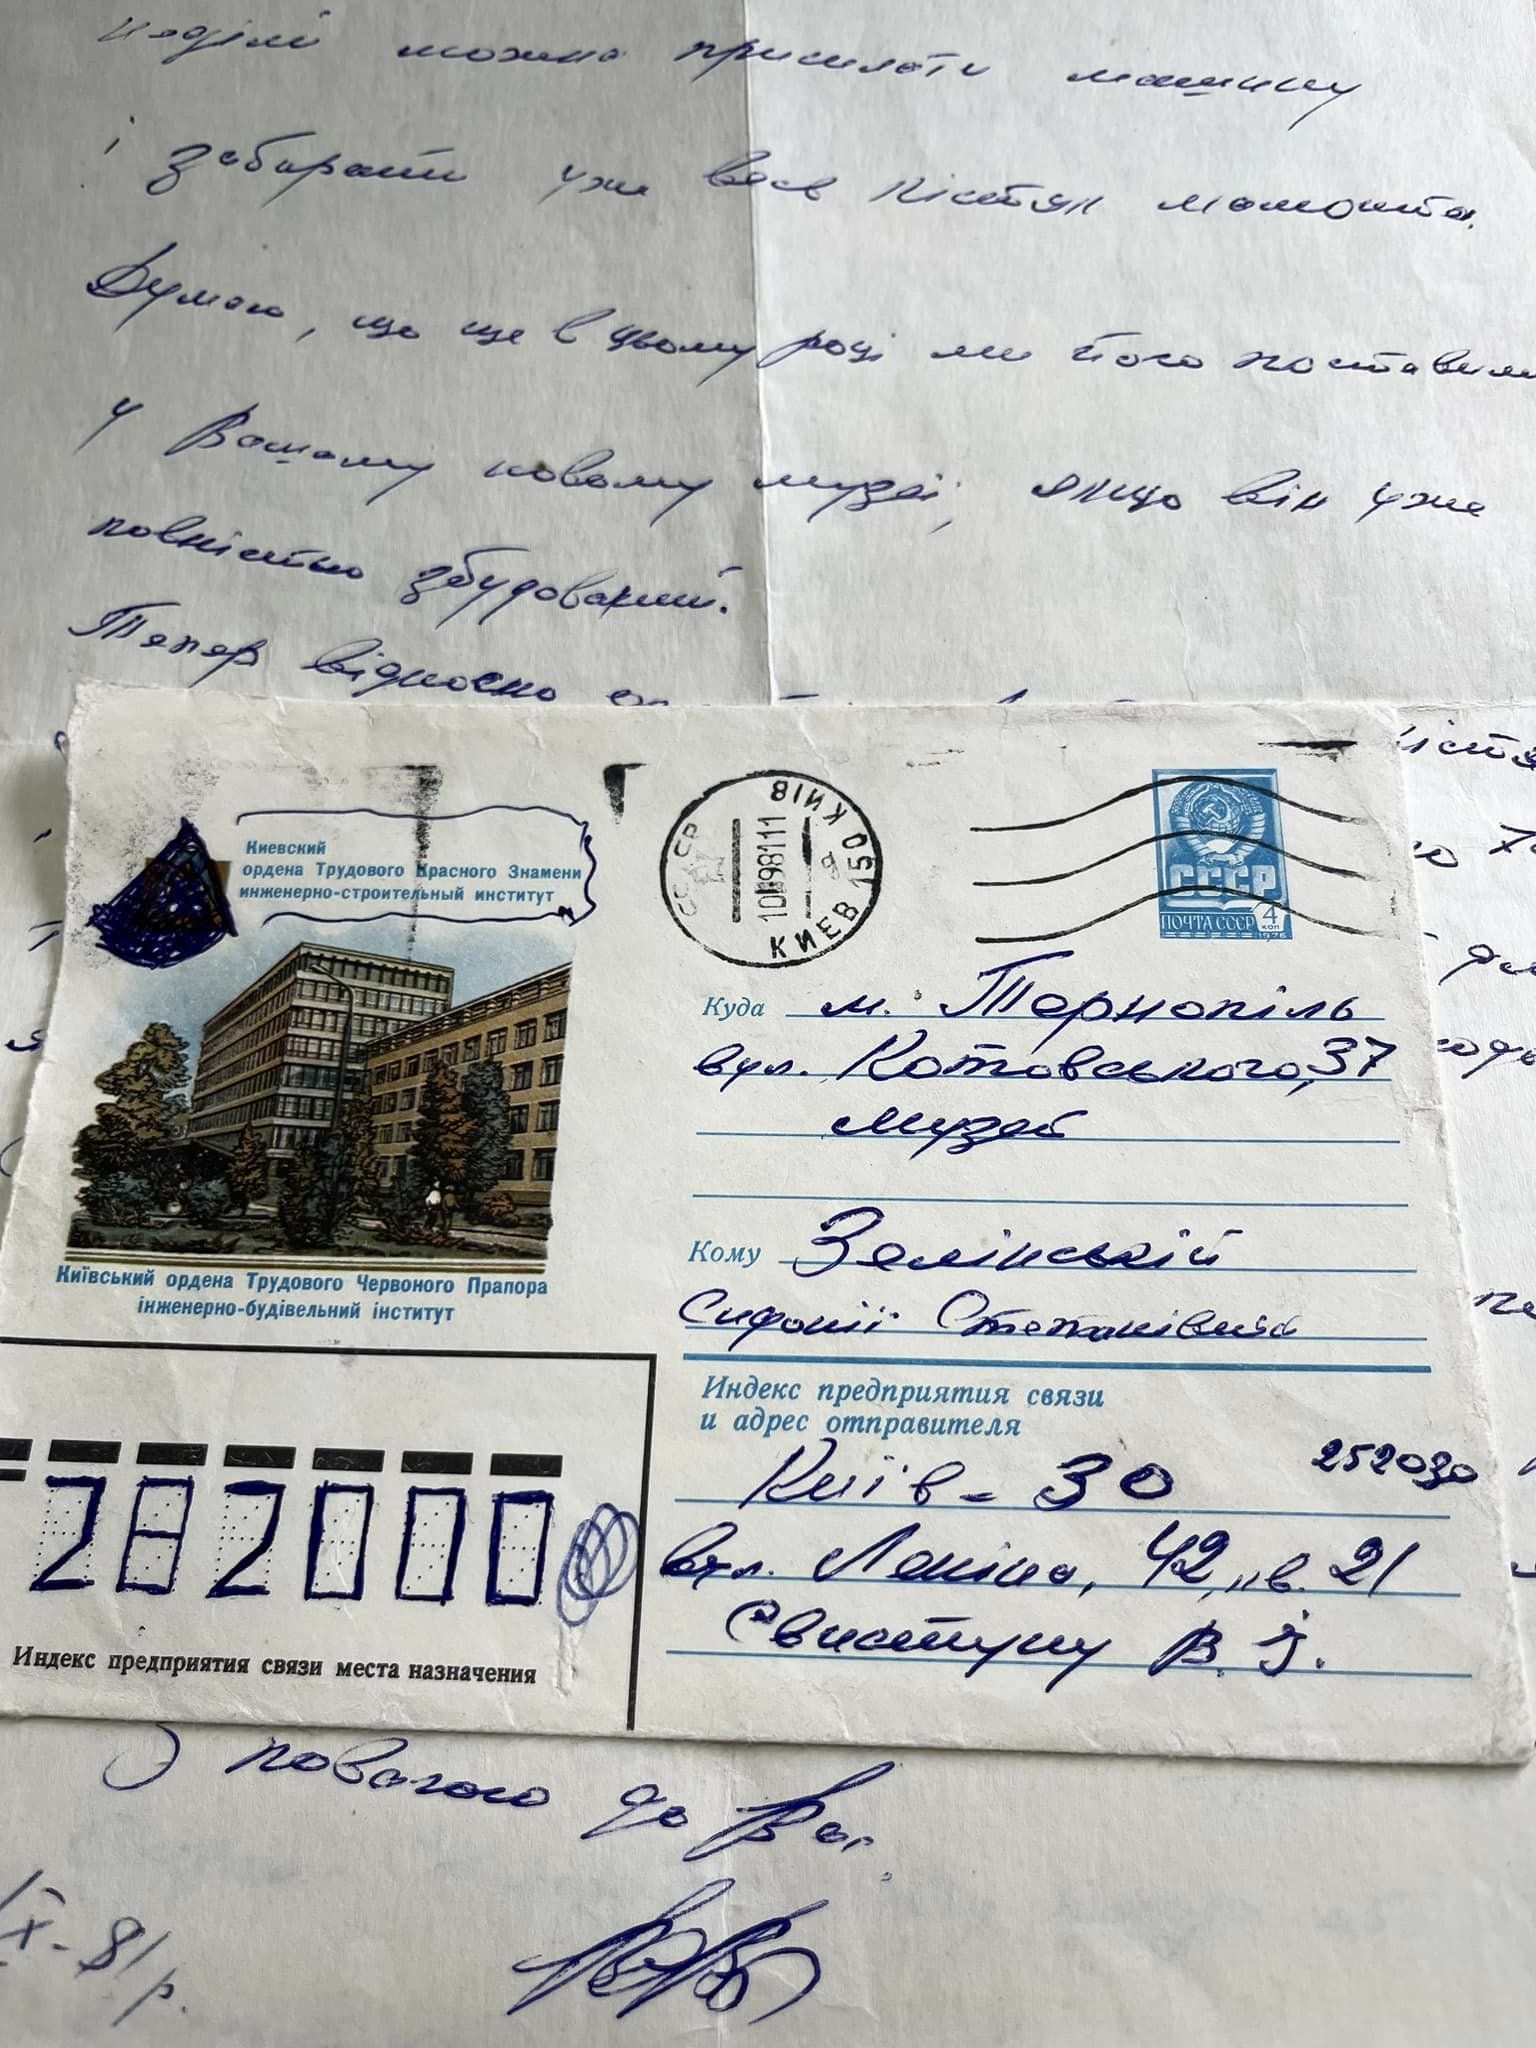 неділі можна прислати машину
і забирати уже весь кістяк мамонта.
Думаю, що ще в цьому році ми його поставим
у Вашому новому музеї, якщо він уже
повністю збудований.
Тепер відносно
Киевский
ордена Трудового Красного Знамени
инженерно-строительный институт
Київський ордена Трудового Червоного Прапора
інженерно-будівельний інститут
КИЇВ
КИЕВ 150
СССР
ПОЧТА СССР 4 КОП
1976
Куда м. Тернопіль
вул. Котовського, 37
музей
Кому Зелінській
Сифонії Степанівній
Индекс предприятия связи
и адрес отправителя
Київ - 30 252030
вул. Леніна, 42, кв. 21
Свистуну В. Й.
282000
Индекс предприятия связи места назначения
З повагою до Вас.
IX-81р.